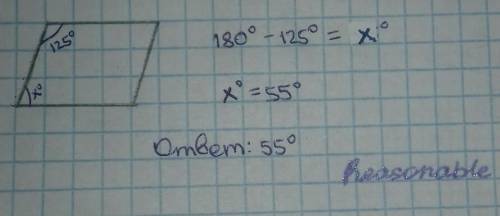 125°
x°
180° - 125° = x°
x° = 55°
Ответ: 55°
Reasonable